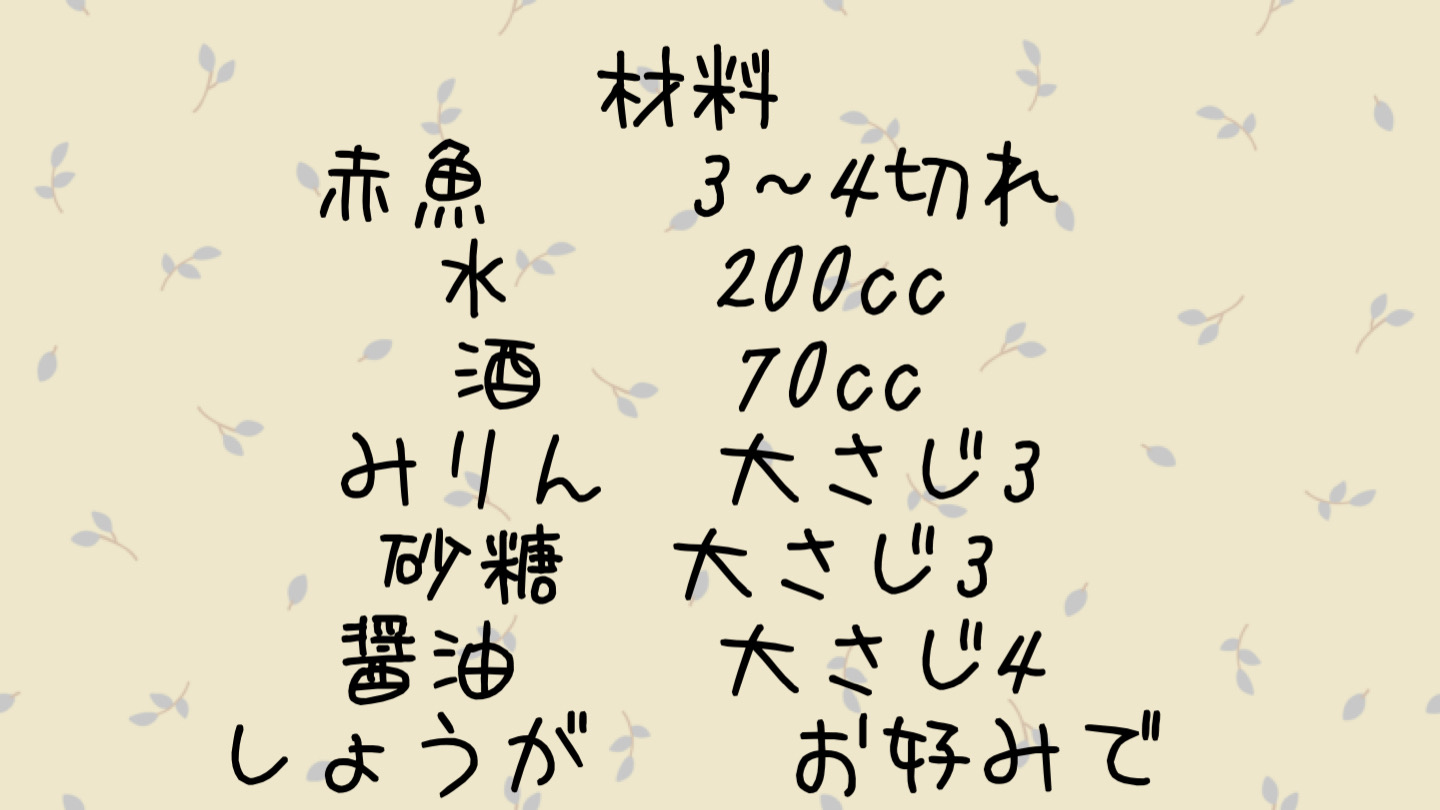 材料
赤魚 3～4切れ
水 200cc
酒 70cc
みりん 大さじ3
砂糖 大さじ3
醤油 大さじ4
しょうが お好みで